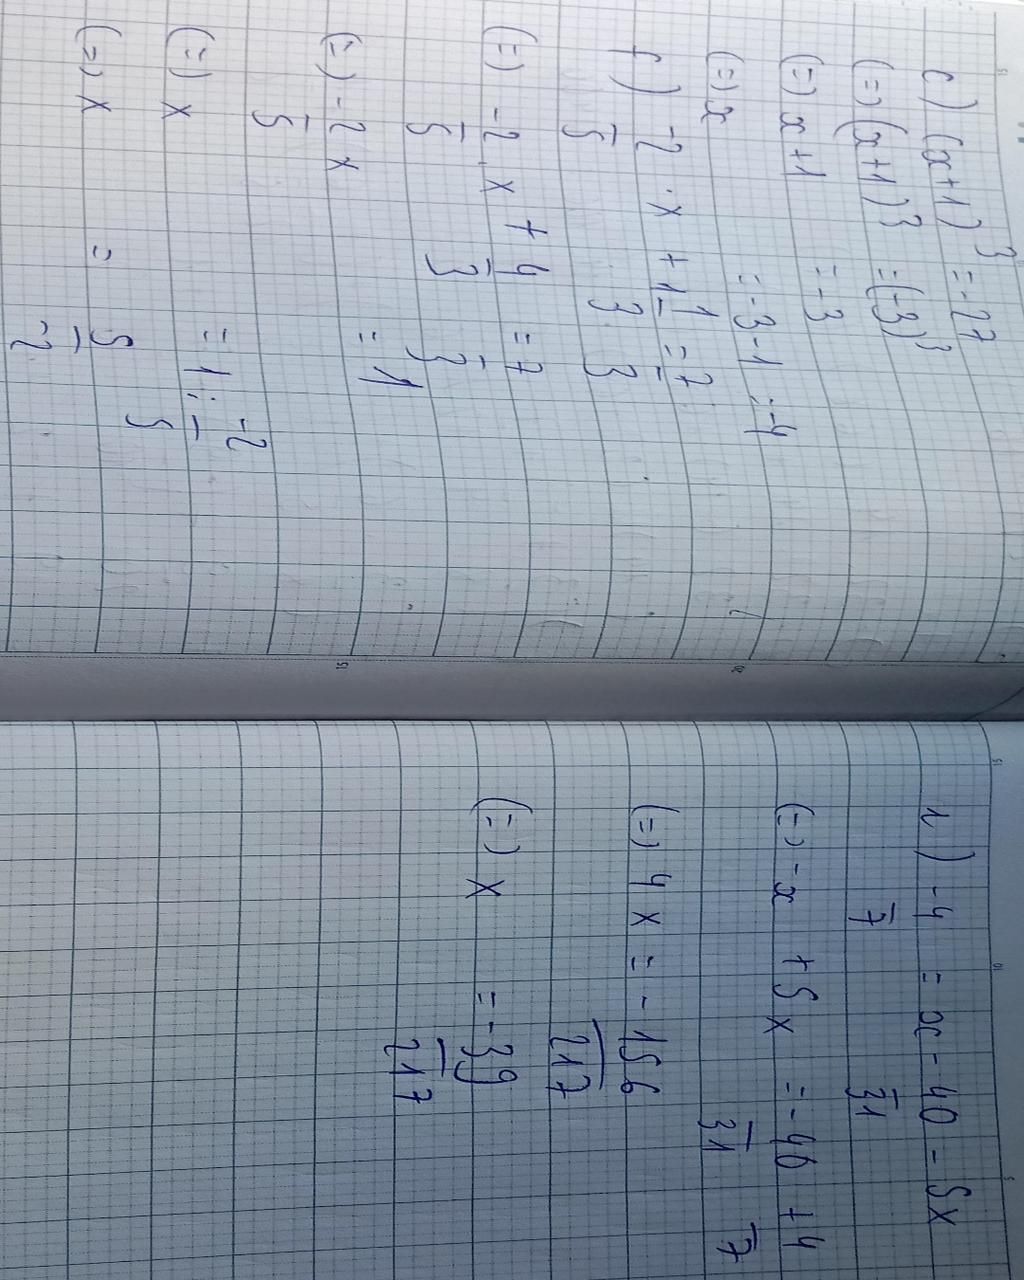 c) (x+1)³ = -27
(=) (x+1)³ = (-3)³
(=) x+1 = -3
(=) x = -3-1 = -4
f) -2/5 . x + 1 1/3 = 7/3
(=) -2/5 . x + 4/3 = 7/3
(=) -2/5 x = 1
(=) x = 1 : -2/5
(=) x = 5/-2
i) -4/7 = x - 40/31 - 5x
(=) -x + 5x = -40/31 + 4/7
(=) 4x = -156/217
(=) x = -39/217